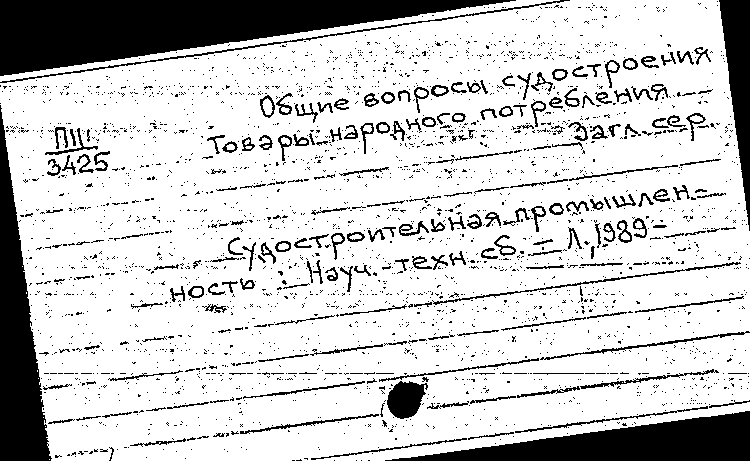 Общие вопросы судостроения
Товары народного потребления.
Загл. сер.
ПЩ
3425
Судостроительная промышлен-
ность : Науч.-техн. сб. – Л., 1989-